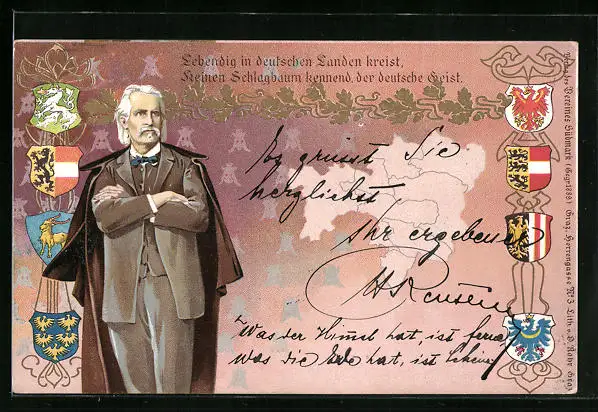 Lebendig in deutschen Landen kreist,
Keinen Schlagbaum kennend, der deutsche Geist.
Es grüsst Sie
herzlichst
Ihr ergebener
"Was der Himmel hat, ist fern,
was die Erde hat, ist
Verlag des Vereines Südmark (Gegr. 1889) Graz, Herrengasse No 3 Lith. v.